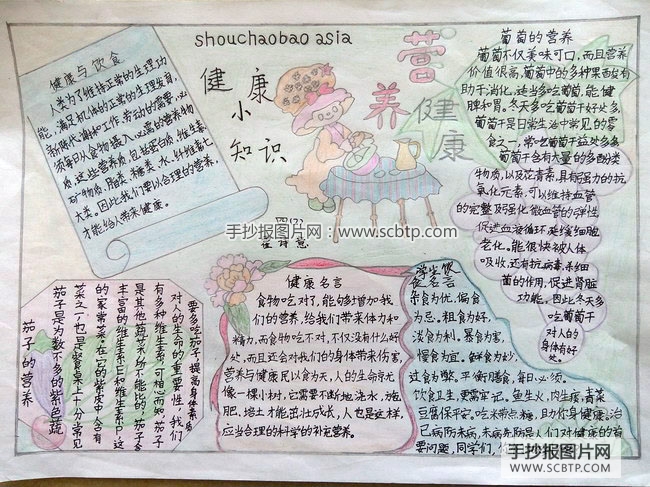 shouchaobao asia
健康与饮食
人类为了维持正常的生理功
能,满足机体的正常的生理发育,
新陈代谢和工作劳动的需要,必
须每日从食物摄入必需的营养物
质,这些营养质,包括蛋白质、维生素、
矿物质、脂类、糖类、水、纤维素七
大类。因此我们要以合理的营养,
才能给人带来健康。
健康
小
知识
营
养
健
康
四(2)
手抄报图片网 www.scbtp.com
葡萄的营养
葡萄不仅美味可口,而且营养
价值很高,葡萄中的多种果酸有
助于消化,适当多吃葡萄,能健
脾和胃。冬天多吃葡萄干好处多,
葡萄干是日常生活中常见的零
食之一,常吃葡萄干益处多多
葡萄干含有大量的多酚类
物质,以及花青素,具有强力的抗
氧化元素,可以维持血管
的完整及强化微血管的弹性,
促进血液循环,延缓细胞
老化。能很快被人体
吸收,还有抗病毒、杀细
菌的作用,促进肾脏
功能,因此冬天多
吃葡萄干
对人的
身体有好
处。
茄子的营养
茄子是为数不多的紫色蔬
菜之一,也是餐桌上十分常见
的家常菜,在它的紫皮中含有
丰富的维生素E和维生素P,这
是其他蔬菜水份不能比的,茄子
有多种维生素,可相心知,茄子
对人的生命的重要性,我们
要多吃茄子,提高身体素质
健康名言
食物吃对了,能够增加我
们的营养,给我们带来体力和
精力,而食物吃不对,不仅没有什么好
处,而且还会对我们的身体带来伤害,
营养与健康民以食为天,人的生命京尤
像一棵小材,它需要不断地浇水,施
肥,培土才能茁壮成长,人也是这样,
应当合理的科学的补充营养。
名言
杂食为优,偏食
为忌。粗食为好,
淡食为利。暴食为害,
慢食为宜。鲜食为妙,
过食为弊。平衡膳食,每日必须。
饮食卫生,更需牢记。鱼生火,肉生痰,青菜
豆腐保平安。吃米带点糠,助你身健康。治
已病防未病,未病先防是人们对健康的首
要问题,同学们,
手抄报图片网
WWW.SCBTP.COM